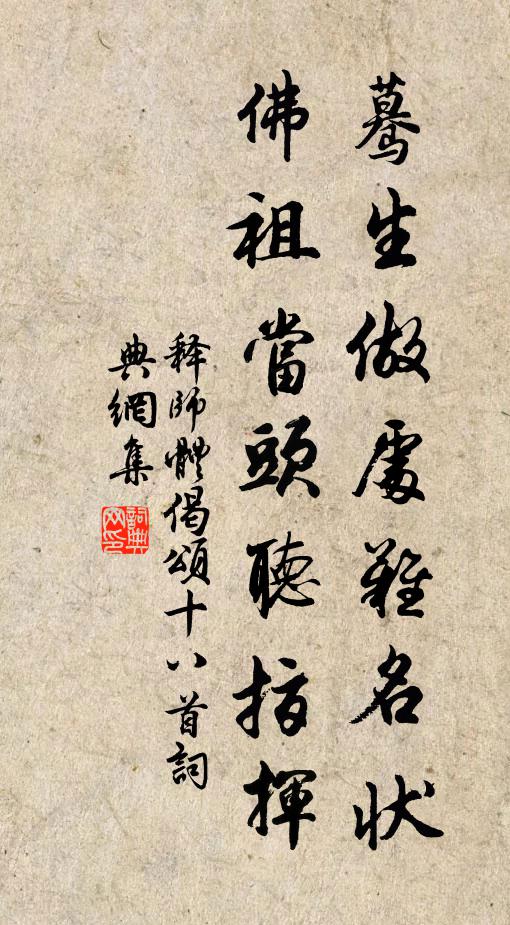 驀生做處難名状
佛祖當頭聽指揮
释師體偈頌十八首詞
典網集
詞典網印